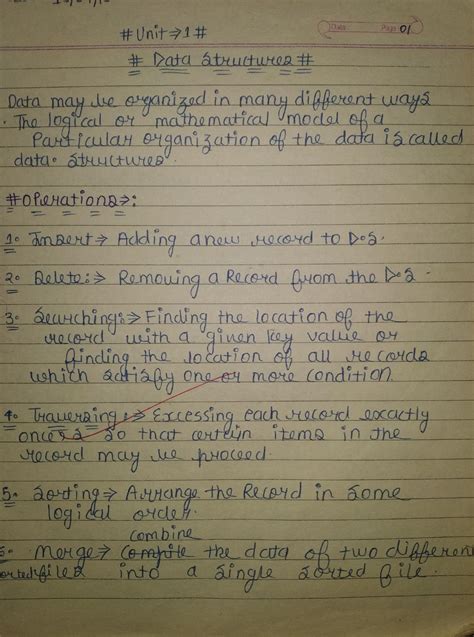 Date: Page 01
# Unit ⇒ 1 #
# Data Structures #
Data may be organized in many different ways
. The logical or mathematical model of a
Particular organization of the data is called
data. structures.
# Operations ⇒:
1. Insert ⇒ Adding a new record to D.S.
2. Delete: ⇒ Removing a Record from the D.S.
3. Searching: ⇒ Finding the location of the
record with a given key value or
finding the location of all records
which satisfy one or more condition
4. Traversing: ⇒ Excessing each record exactly
once so that certein items in the
record may be proceed.
5. Sorting ⇒ Arrange the Record in some
logical order.
combine
6. Merge ⇒ Compile the data of two differen
sorted files into a single sorted file.